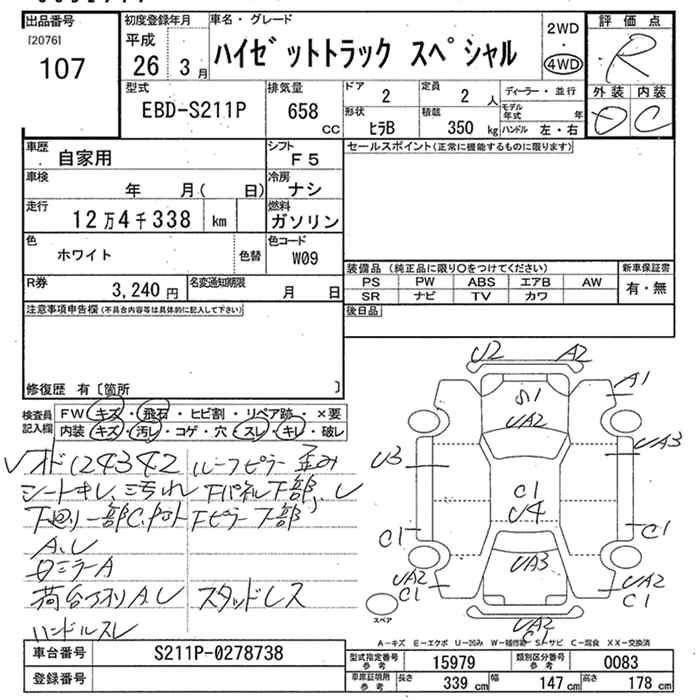 出品番号
[2076]
107
初度登録年月
平成
26 3 月
車名・グレード
ハイゼットトラック スペシャル
2WD
・
4WD
評価点
R
外装 内装
D C
型式
EBD-S211P
排気量
658 CC
ドア
2
定員
2 人
形状
ヒラB
積載
350 kg
ディーラー・並行
モデル年式 年
ハンドル 左・右
車歴
自家用
シフト
F5
車検
年 月( 日)
冷房
ナシ
走行
12万4千338 km
燃料
ガソリン
色
ホワイト
色替
色コード
W09
R券
3,240 円
名変通知期限
月 日
セールスポイント(正常に機能するものに限ります)
装備品 (純正品に限り○をつけてください)
PS PW ABS エアB AW
SR ナビ TV カワ
新車保証書
有・無
後日品
注意事項申告欄(不具合内容等は具体的に記入して下さい)
修復歴 有〔箇所 〕
検査員記入欄
FW キズ・飛石・ヒビ割・リペア跡・×要
内装 キズ・汚レ・コゲ・穴・スレ・キレ・破レ
シートキレ、汚れ
下廻り一部C、
A、U
ロミラーA
荷台アオリA.U
ハンドルスレ
ルーフピラー歪み
下部、U
Fピラー下部
スタッドレス
U2 A2
A1
S1
UA2
U3
UA3
C1
U4
C1
C1
UA3
UA2
C1
UA2
C1
UA2
C1
スペア
A-キズ E-エクボ U-凹み W-補修跡 S-サビ C-腐食 XX-交換済
車台番号
S211P-0278738
登録番号
型式指定番号 参考
15979
類別区分番号 参考
0083
車庫証明用 参考
長さ 339 cm 幅 147 cm 高さ 178 cm